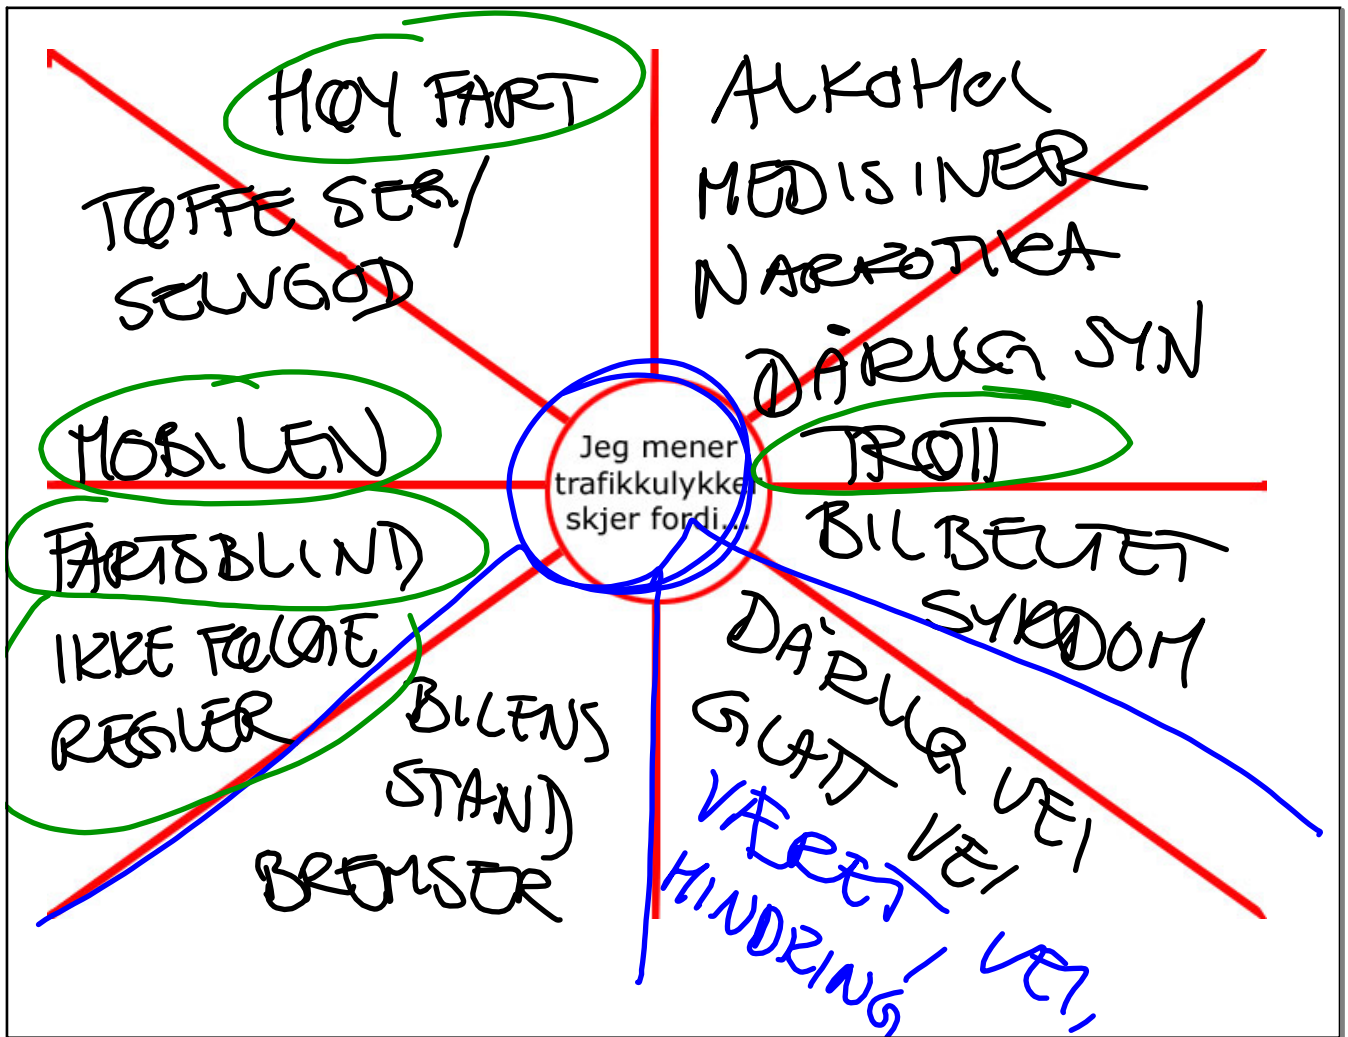 HØY FART
TØFFE SEG/
SELVGOD
MOBILEN
FARTSBLIND
IKKE FØLGE
REGLER
BILENS
STAND
BREMSER
Jeg mener
trafikkulykker
skjer fordi...
ALKOHOL
MEDISINER
NARKOTIKA
DÅRLIG SYN
TRØTT
BILBELTET
SYKDOM
DÅRLIG VEI
GLATT VEI
VÆRET VEI,
HINDRING/